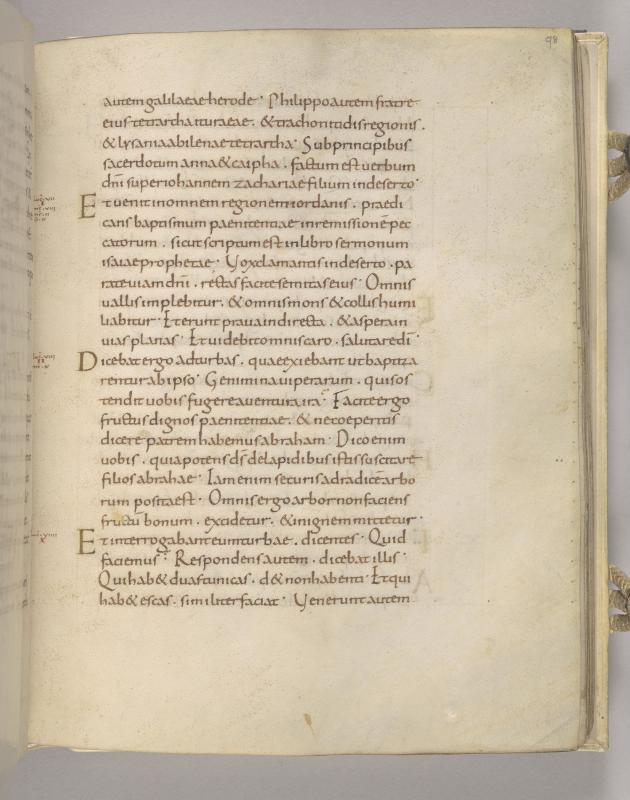 98
autem galilaeae herode · Philippo autem fratre
eius tetrarcha ituraeae · & trachonitidis regionis ·
& lysania abilenae tetrarcha · Sub principibus
sacerdotum anna & caipha · factum est uerbum
dn̄i super iohannem zachariae filium in deserto ·
Et uenit in omnem regionem iordanis · praedi
cans baptismum paenitentiae in remissionē pec
catorum · sicut scriptum est in libro sermonum
isaiae prophetae · Vox clamantis in deserto · pa
rate uiam dn̄i · rectas facite semitas eius · Omnis
uallis implebitur · & omnis mons & collis humi
liabitur · Et erunt praua in directa · & aspera in
uias planas · Et uidebit omnis caro · salutare dī ·
Dicebat ergo ad turbas · quae exiebant ut baptiza
rentur ab ipso · Genimina uiperarum · quis os
tendit uobis fugere a uentura ira · Facite ergo
fructus dignos paenitentiae · & ne coeperitis
dicere patrem habemus abraham · Dico enim
uobis · quia potens ds̄ de lapidibus istis suscitare
filios abrahae · Iam enim securis ad radicē arbo
rum posita est · Omnis ergo arbor non faciens
fructū bonum · excidetur · & in ignem mittetur ·
Et interrogabant eum turbae · dicentes · Quid
faciemus · Respondens autem · dicebat illis ·
Qui hab& duas tunicas · d& non habenti · Et qui
hab& escas · similiter faciat · Venerunt autem